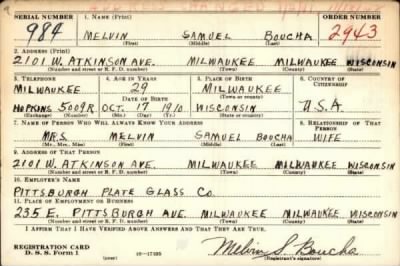 SERIAL NUMBER 1. NAME (Print) ORDER NUMBER
984 MELVIN SAMUEL BOUCHA 2943
(First) (Middle) (Last)
2. ADDRESS (Print)
2101 W. ATKINSON AVE. MILWAUKEE MILWAUKEE WISCONSIN
(Number and street or R. F. D. number) (Town) (County) (State)
3. TELEPHONE 4. AGE IN YEARS 5. PLACE OF BIRTH 6. COUNTRY OF CITIZENSHIP
MILWAUKEE 29 MILWAUKEE
(Town or county)
DATE OF BIRTH
HOPKINS 5009R OCT. 17 1910 WISCONSIN U.S.A.
(Exchange) (Number) (Mo.) (Day) (Yr.) (State or country)
7. NAME OF PERSON WHO WILL ALWAYS KNOW YOUR ADDRESS 8. RELATIONSHIP OF THAT PERSON
MRS. MELVIN SAMUEL BOUCHA WIFE
(Mr., Mrs., Miss) (First) (Middle) (Last)
9. ADDRESS OF THAT PERSON
2101 W. ATKINSON AVE. MILWAUKEE MILWAUKEE WISCONSIN
(Number and street or R. F. D. number) (Town) (County) (State)
10. EMPLOYER'S NAME
PITTSBURGH PLATE GLASS CO.
11. PLACE OF EMPLOYMENT OR BUSINESS
235 E. PITTSBURGH AVE. MILWAUKEE MILWAUKEE WISCONSIN
(Number and street or R. F. D. number) (Town) (County) (State)
I AFFIRM THAT I HAVE VERIFIED ABOVE ANSWERS AND THAT THEY ARE TRUE.
REGISTRATION CARD
D. S. S. Form 1 (over) 16—17105 Melvin S. Boucha
(Registrant's signature)